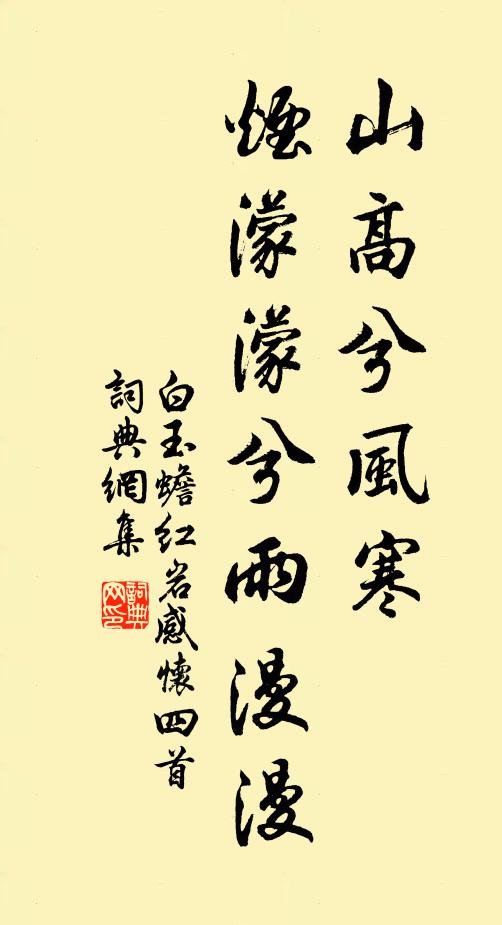 山高兮風寒
煙濛濛兮雨漫漫
白玉蟾紅岩感懷四首
詞典網集
詞典网印